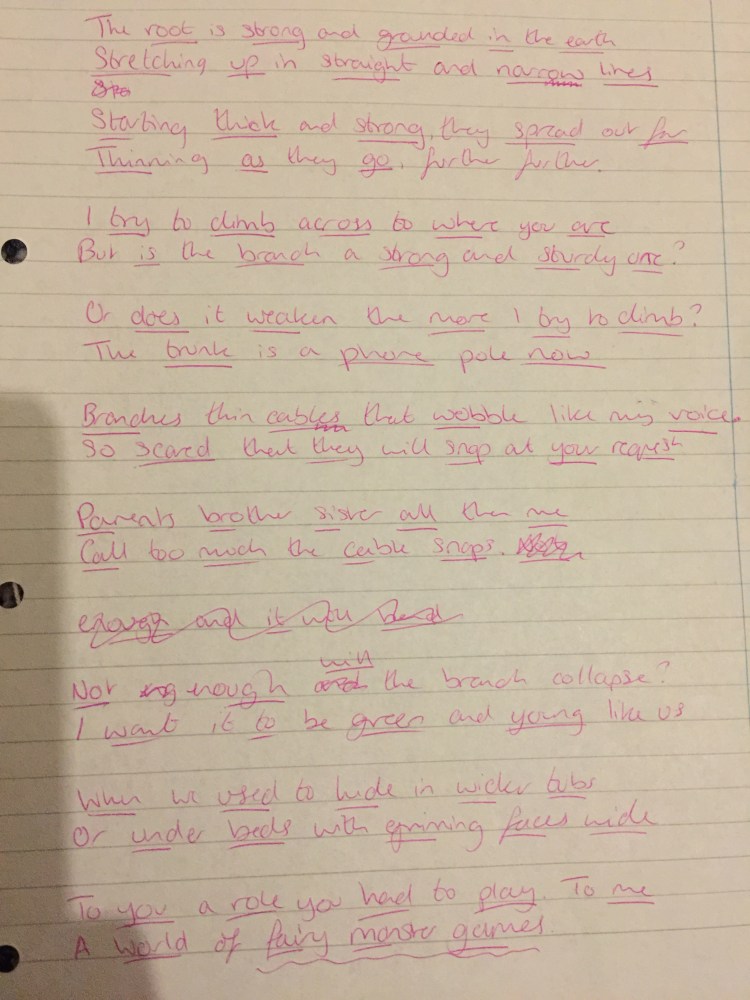 The root is strong and grounded in the earth
Stretching up in straight and narrow lines
Starting thick and strong, they spread out far
Thinning as they go, further further.
I try to climb across to where you are
But is the branch a strong and sturdy one?
Or does it weaken the more I try to climb?
The trunk is a phone pole now
Branches thin cables that wobble like my voice.
So scared that they will snap at your request
Parents brother sister all then me
Call too much the cable snaps.
enough and it will bend
Not enough will the branch collapse?
I want it to be green and young like us
When we used to hide in wicker tubs
Or under beds with grinning faces wide
To you a role you had to play. To me
A world of fairy monster games.